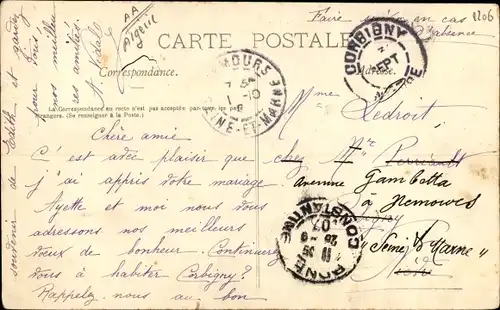 AA
Algérie
Faire suivre en cas
d'absence
1206
CARTE POSTALE
Correspondance.
Adresse.
La Correspondance au recto n'est pas acceptée par tous les pays
étrangers. (Se renseigner à la Poste.)
CORBIGNY
SEPT
NIÈVRE
NEMOURS
SEINE-ET-MARNE
BÔNE
CONSTANTINE
07
Chère amie
C'est avec plaisir que
j'ai appris votre mariage
Ayette et moi nous vous
adressons nos meilleurs
vœux de bonheur. Continuerez
vous à habiter Corbigny?
Rappelez-nous au bon
souvenir de Edith et gardez
pour vous
nos meilleures
amitiés.
A. Vidal
Mme Ledroit
chez Mme Perriault
avenue Gambetta
à Nemours
Corbigny
"Seine & Marne"
Nièvre